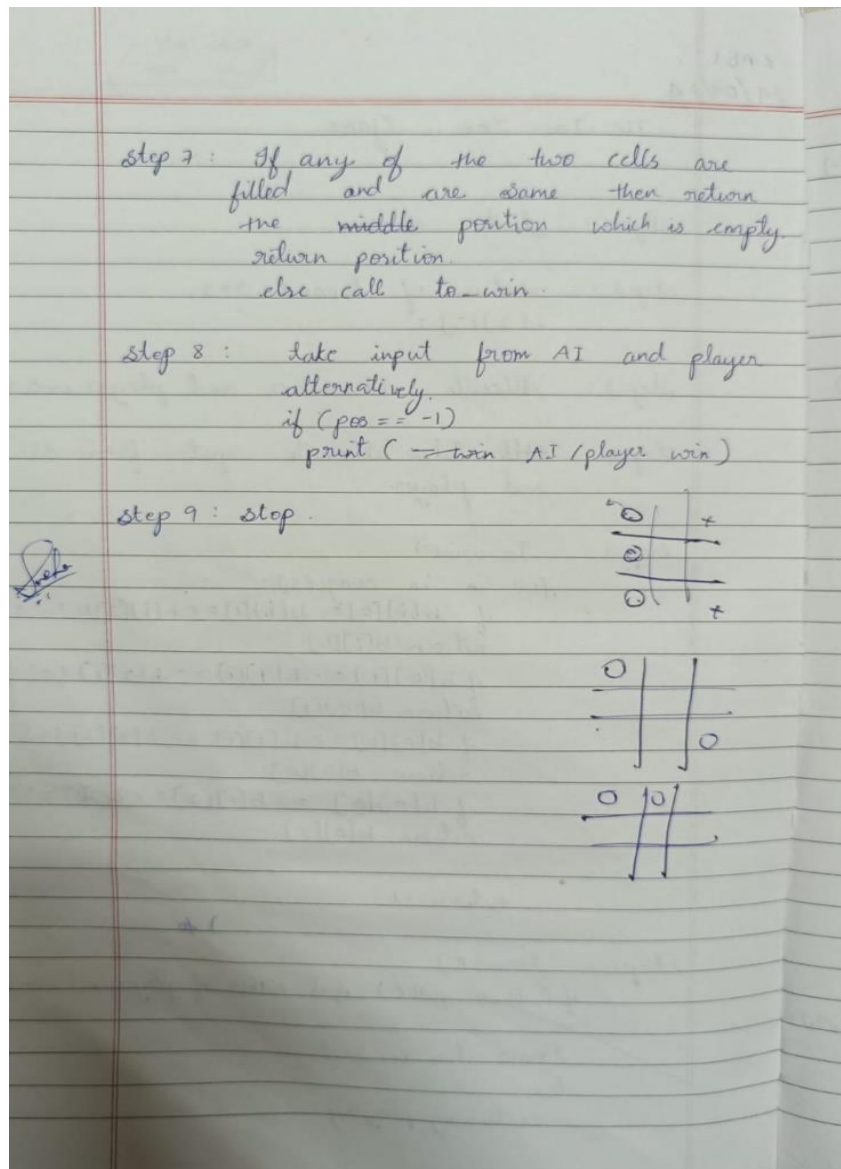 step 7 : If any of the two cells are
filled and are same then return
the middle position which is empty.
return position.
else call to_win.
step 8 : take input from AI and player
alternatively.
if (pos == -1)
print ( win AI / player win )
step 9 : stop.
O +
O
O +
O
O
O O